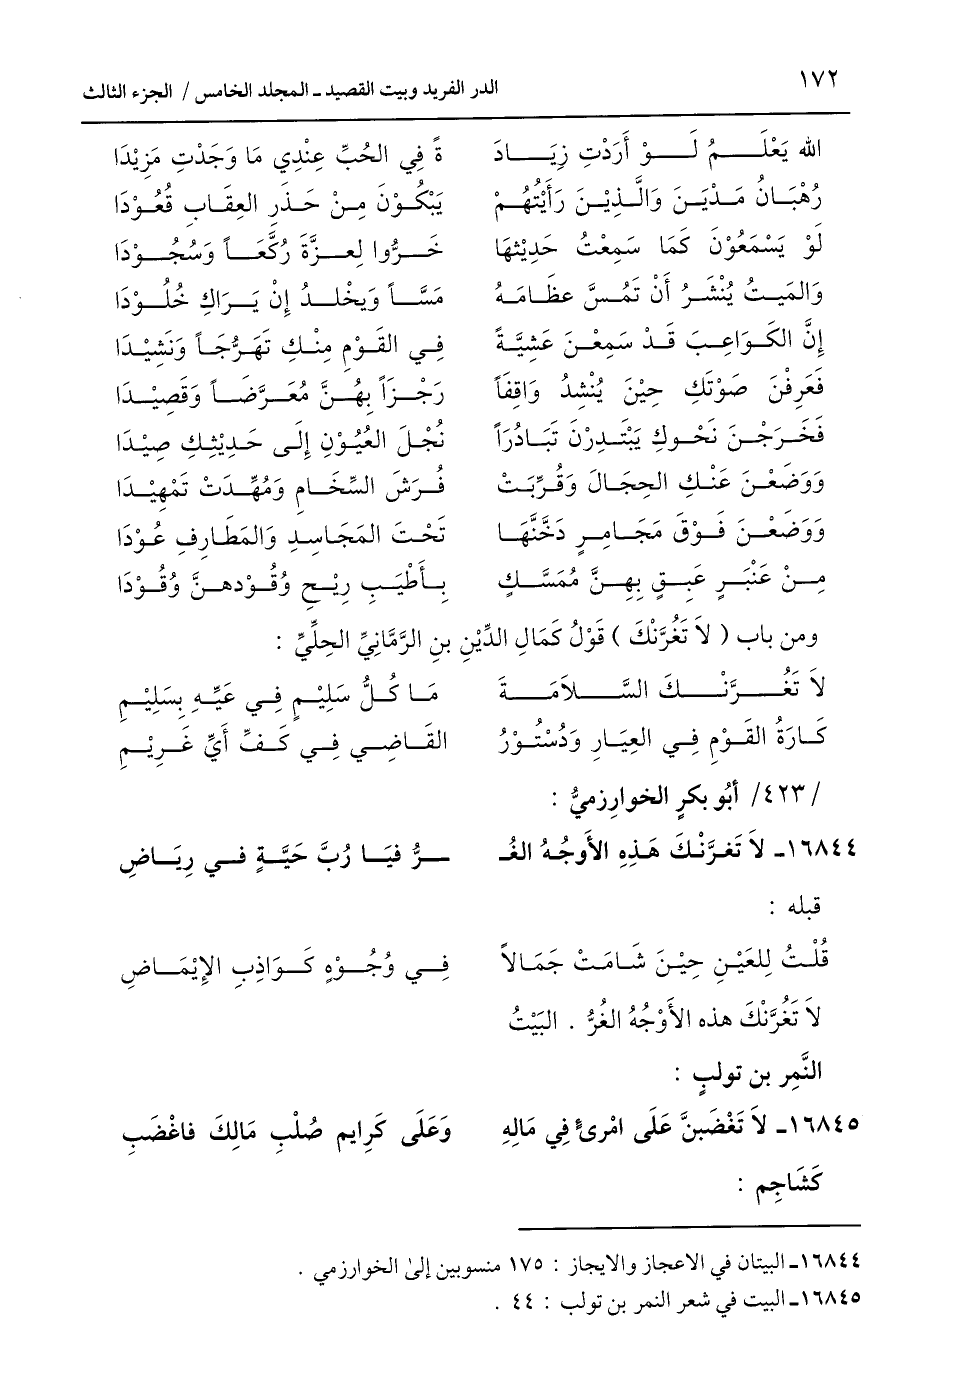 ١٧٢ الدر الفريد وبيت القصيد ـ المجلد الخامس / الجزء الثالث
الله يَعْلَـــمُ لَـــوْ أَرَدْتِ زِيَـــادَ ةً فِي الحُبِّ عِنْدِي مَا وَجَدْتِ مَزِيْدَا
رُهْبَـانُ مَـدْيَـنَ وَالَّـذِيْـنَ رَأَيْتُهُـمْ يَبْكُـوْنَ مِـنْ حَـذَرِ العِقَـابِ قُعُـوْدَا
لَوْ يَسْمَعُوْنَ كَمَا سَمِعْتُ حَدِيْثِهَا خَـرُّوا لِعِـزَّةَ رُكَّعَـاً وَسُجُـوْدَا
وَالمَيـتُ يُنْشَـرُ أَنْ تَمُـسَّ عِظَـامَـهُ مَسَّـاً وَيخْلـدُ إِنْ يَـرَاكِ خُلُـوْدَا
إِنَّ الكَـوَاعِـبَ قَـدْ سَمِعْـنَ عَشِيَّـةً فِـي القَـوْمِ مِنْـكِ تَهَـرُّجَـاً وَنَشِيْـدَا
فَعَرِفْنَ صَوْتَكِ حِيْنَ يُنْشدُ وَاقِفَاً رَجْـزَاً بِهُـنَّ مُعَـرَّضَـاً وَقَصِيْـدَا
فَخَـرَجْـنَ نَحْـوكِ يَبْتَـدِرْنَ تَبَـادُرَاً نُجْـلَ العُيُـوْنِ إِلَـى حَـدِيْثِـكِ صِيْـدَا
وَوَضَعْـنَ عَنْـكِ الحِجَالَ وَقُرِّبَـتْ فُـرَشَ السِّخَـامِ وَمُهِّـدَتْ تَمْهِيْـدَا
وَوَضَعْـنَ فَـوْقَ مَجَـامِـرٍ دَخَّنَّهَـا تَحْـتَ المَجَـاسِـدِ وَالمَطَـارِفِ عُـوْدَا
مِـنْ عَنْبَـرٍ عَبِـقٍ بِهِـنَّ مُمَسَّـكٍ بِـأَطْيَـبِ رِيْـحٍ وُقُـوْدهـنَّ وُقُـوْدَا
ومن باب ( لاَ تَغُرَّنْكَ ) قَوْلُ كَمَالِ الدِّيْنِ بنِ الرَّمَّانِيِّ الحِلِّيِّ :
لاَ تَغُـــرَّنْـــكَ السَّـــلاَمَـــةَ مَـا كُـلُّ سَلِيْـمٍ فِـي عَيِّـهِ بِسَلِيْـمِ
كَـارَةُ القَـوْمِ فِـي العِيَـارِ وَدُسْتُـوْرُ القَـاضِـي فِـي كَـفِّ أَيِّ غَـرِيْـمِ
/٤٢٣/ أَبُو بكرٍ الخوارِزميُّ :
١٦٨٤٤ـ لاَ تَغرَّنْكَ هَذِهِ الأَوجُهُ الغُـ ـرُّ فيَـا رُبَّ حَيَّـةٍ فـي رِيَـاضِ
قبله :
قُلْـتُ لِلعَيْـنِ حِيْـنَ شَـامَـتْ جَمَـالاً فِـي وُجُـوْهٍ كَـوَاذِبِ الإِيْمَـاضِ
لاَ تَغُرَّنْكَ هذه الأَوْجُهُ الغُرُّ . البَيْتُ
النَّمِر بن تولبٍ :
١٦٨٤٥ـ لاَ تَغْضَبنَّ عَلَى امْرئٍ فِي مَالِهِ وَعَلَى كَرِايم صُلْبِ مَالِكَ فاغْضَبِ
كَشَاجِم :
١٦٨٤٤ـ البيتان في الاعجاز والايجاز : ١٧٥ منسوبين إلى الخوارزمي .
١٦٨٤٥ـ البيت في شعر النمر بن تولب : ٤٤ .